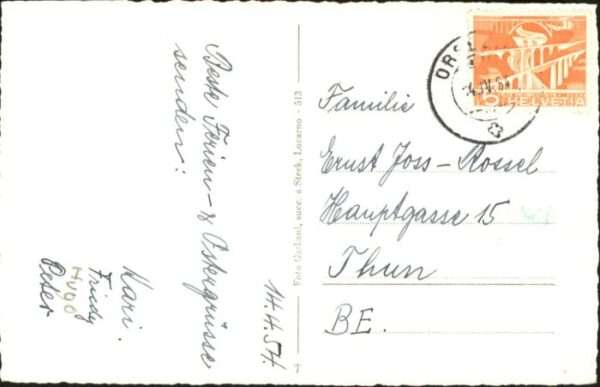 Beste Ferien- & Ostergrüsse
senden:
Kari.
Friedy
Hugo
Peter
14.4.54.
Foto Garbani, succ. a Steck, Locarno - 513
7
Familie
Ernst Joss-Rossel
Hauptgasse 15
Thun
BE.
HELVETIA
5